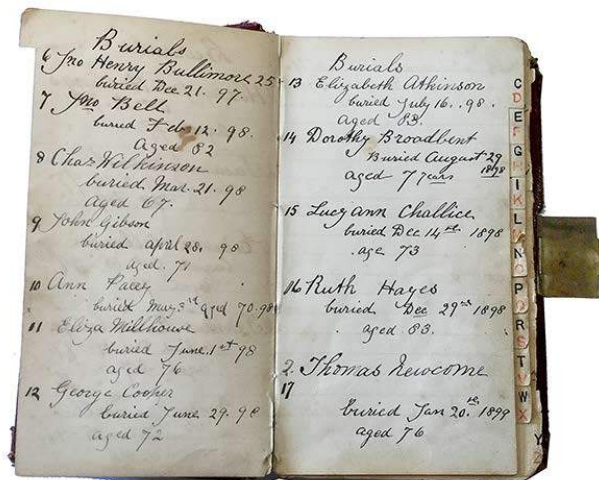 Burials
6 Jno Henry Bullimore 25
buried Dec 21. 97.
7 Jno Bell
buried Feb 12. 98.
Aged 82
8 Chas Wilkinson
buried Mar. 21. 98
aged 67.
9 John Gibson
buried april 28. 98
aged. 71
10 Ann Pacey
buried May 3rd aged 70. 98
11 Eliza Millhouse
buried June. 1st 98
aged 76
12 George Cooper
buried June. 29. 98
aged 72
Burials
13 Elizabeth Athinson
buried July 16.. 98.
aged 83.
14 Dorothy Broadbent
Buried August 29
1898
aged 7 years
15 Lucy ann Challice
buried Dec 14th 1898
age 73
16 Ruth Hayes
buried Dec 29th 1898
aged 83.
2. Thomas Newcome
17
buried Jan 20.th 1899
aged 76
C
D
E
F
G
I
K
L
M
N
O
P
Q
R
S
T
V
W
X
Y
Z